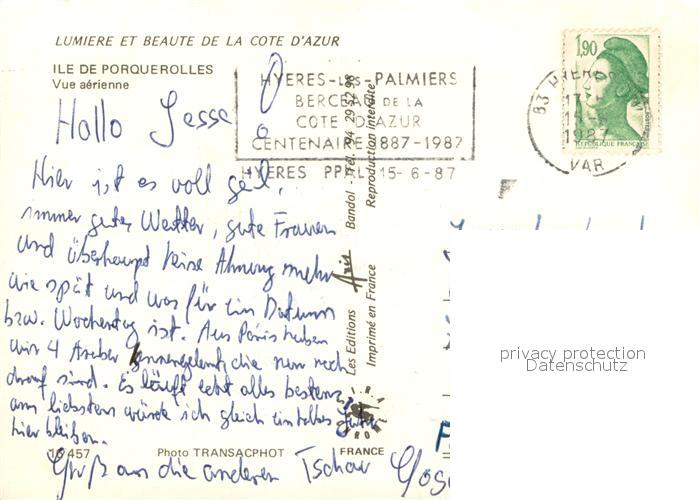 LUMIERE ET BEAUTE DE LA COTE D'AZUR
ILE DE PORQUEROLLES
Vue aérienne
HYERES-LES-PALMIERS
BERCEAU DE LA
COTE D'AZUR
CENTENAIRE 1887-1987
HYERES PPAL 15-6-87
1,90
REPUBLIQUE FRANÇAISE
83 HYERES
1987
VAR
Hallo Jesse!
Hier ist es voll geil,
immer gutes Wetter, gute Frauen
und überhaupt keine Ahnung mehr
wie spät und was für ein Datum
bzw. Wochentag ist. Aus Paris haben
wir 4 Araber kennengelernt, die nun recht
drauf sind. Es läuft echt alles bestens,
am liebsten würde ich gleich ein halbes Jahr
hier bleiben.
Gruß an die anderen Tschau
Les Editions Aris Bandol - Tél. 94 29
Imprimé en France Reproduction interdite
16 457 Photo TRANSACPHOT FRANCE
privacy protection
Datenschutz